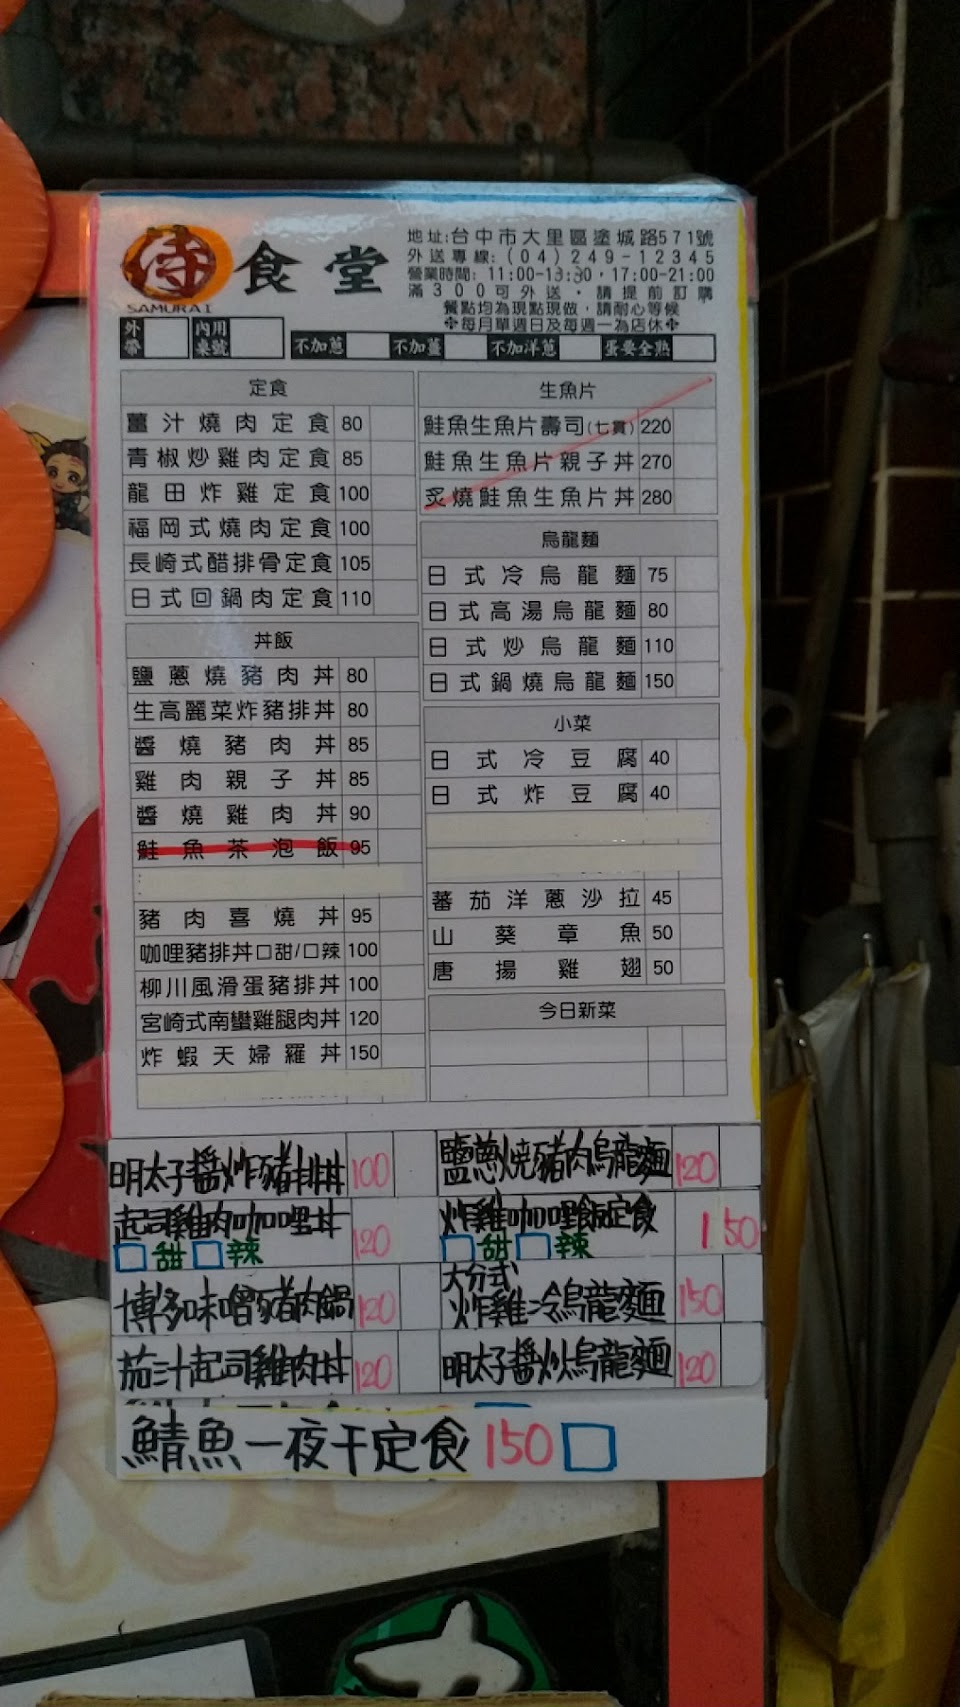 侍食堂
SAMURAI
地址:台中市大里區塗城路571號
外送專線:(04)249-12345
營業時間: 11:00-13:30，17:00-21:00
滿300可外送，請提前訂購
餐點均為現點現做，請耐心等候
✤每月單週日及每週一為店休✤
外帶 內用桌號 不加蔥 不加薑 不加洋蔥 蛋要全熟
定食
薑汁燒肉定食 80
青椒炒雞肉定食 85
龍田炸雞定食 100
福岡式燒肉定食 100
長崎式醋排骨定食 105
日式回鍋肉定食 110
丼飯
鹽蔥燒豬肉丼 80
生高麗菜炸豬排丼 80
醬燒豬肉丼 85
雞肉親子丼 85
醬燒雞肉丼 90
鮭魚茶泡飯 95
豬肉喜燒丼 95
咖哩豬排丼□甜/□辣 100
柳川風滑蛋豬排丼 100
宮崎式南蠻雞腿肉丼 120
炸蝦天婦羅丼 150
生魚片
鮭魚生魚片壽司(七貫) 220
鮭魚生魚片親子丼 270
炙燒鮭魚生魚片丼 280
烏龍麵
日式冷烏龍麵 75
日式高湯烏龍麵 80
日式炒烏龍麵 110
日式鍋燒烏龍麵 150
小菜
日式冷豆腐 40
日式炸豆腐 40
蕃茄洋蔥沙拉 45
山葵章魚 50
唐揚雞翅 50
今日新菜
明太子醬炸豬排丼 100
起司雞肉咖哩丼 120
□甜 □辣
博多味噌豬肉鍋 120
茄汁起司雞肉丼 120
鹽蔥燒豬肉烏龍麵 120
炸雞咖哩飯定食 150
□甜 □辣
大分式
炸雞冷烏龍麵 150
明太子醬炒烏龍麵 120
鯖魚一夜干定食 150 □